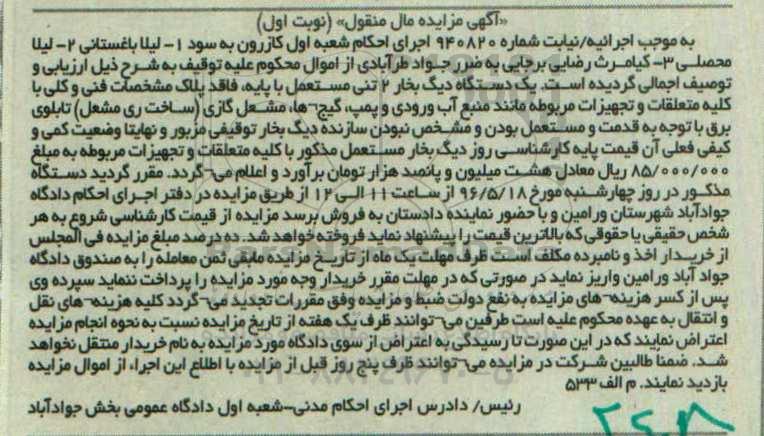 «آگهی مزایده مال منقول» (نوبت اول)
به موجب اجرائیه/نیابت شماره ۹۴۰۸۲۰ اجرای احکام شعبه اول کازرون به سود ۱- لیلا باغستانی ۲- لیلا
محصلی ۳- کیامرث رضایی برجایی به ضرر جواد طرآبادی از اموال محکوم علیه توقیف به شرح ذیل ارزیابی و
توصیف اجمالی گردیده است. یک دستگاه دیگ بخار ۲ تنی مستعمل با پایه، فاقد پلاک مشخصات فنی و کلی با
کلیه متعلقات و تجهیزات مربوطه مانند منبع آب ورودی و پمپ، گیج¬ها، مشعل گازی (ساخت ری مشعل) تابلوی
برق با توجه به قدمت و مستعمل بودن و مشخص نبودن سازنده دیگ بخار توقیفی مزبور و نهایتا وضعیت کمی و
کیفی فعلی آن قیمت پایه کارشناسی روز دیگ بخار مستعمل مذکور با کلیه متعلقات و تجهیزات مربوطه به مبلغ
۸۵/۰۰۰/۰۰۰ ریال معادل هشت میلیون و پانصد هزار تومان برآورد و اعلام می¬گردد. مقرر گردید دستگاه
مذکور در روز چهارشنبه مورخ ۹۶/۵/۱۸ از ساعت ۱۱ الی ۱۲ از طریق مزایده در دفتر اجرای احکام دادگاه
جوادآباد شهرستان ورامین و با حضور نماینده دادستان به فروش برسد مزایده از قیمت کارشناسی شروع به هر
شخص حقیقی یا حقوقی که بالاترین قیمت را پیشنهاد نماید فروخته خواهد شد. ده درصد مبلغ مزایده فی المجلس
از خریدار اخذ و نامبرده مکلف است ظرف مهلت یک ماه از تاریخ مزایده مابقی ثمن معامله را به صندوق دادگاه
جواد آباد ورامین واریز نماید در صورتی که در مهلت مقرر خریدار وجه مورد مزایده را پرداخت ننماید سپرده وی
پس از کسر هزینه¬های مزایده به نفع دولت ضبط و مزایده وفق مقررات تجدید می¬گردد کلیه هزینه¬های نقل
و انتقال به عهده محکوم علیه است طرفین می¬توانند ظرف یک هفته از تاریخ مزایده نسبت به نحوه انجام مزایده
اعتراض نمایند که در این صورت تا رسیدگی به اعتراض از سوی دادگاه مورد مزایده به نام خریدار منتقل نخواهد
شد. ضمناً طالبین شرکت در مزایده می¬توانند ظرف پنج روز قبل از مزایده با اطلاع این اجرا، از اموال مزایده
بازدید نمایند. م الف ۵۳۳
رئیس/ دادرس اجرای احکام مدنی-شعبه اول دادگاه عمومی بخش جوادآباد